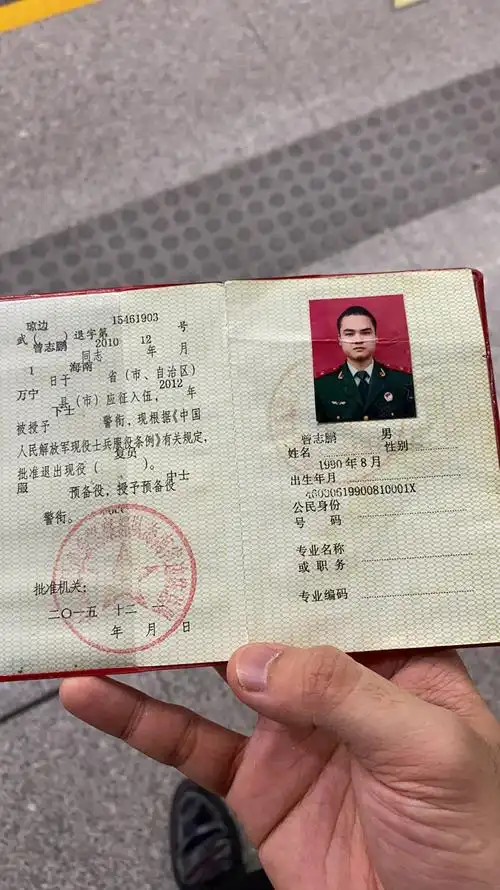 琼边 15461903
武( )退字第 号
曾志鹏 2010 12
同志 年 月
1 海南
日于 省(市、自治区)
万宁 2012
县(市)应征入伍, 年
下士
被授予 警衔,现根据《中国
人民解放军现役士兵服役条例》有关规定,
复员
批准退出现役( )。
服 中士
预备役,授予预备役
警衔。
批准机关:
二〇一五 十二 六
年 月 日
曾志鹏 男
姓名 性别
1990年8月
出生年月
46000619900810001X
公民身份
号 码
专业名称
或 职 务
专业编码